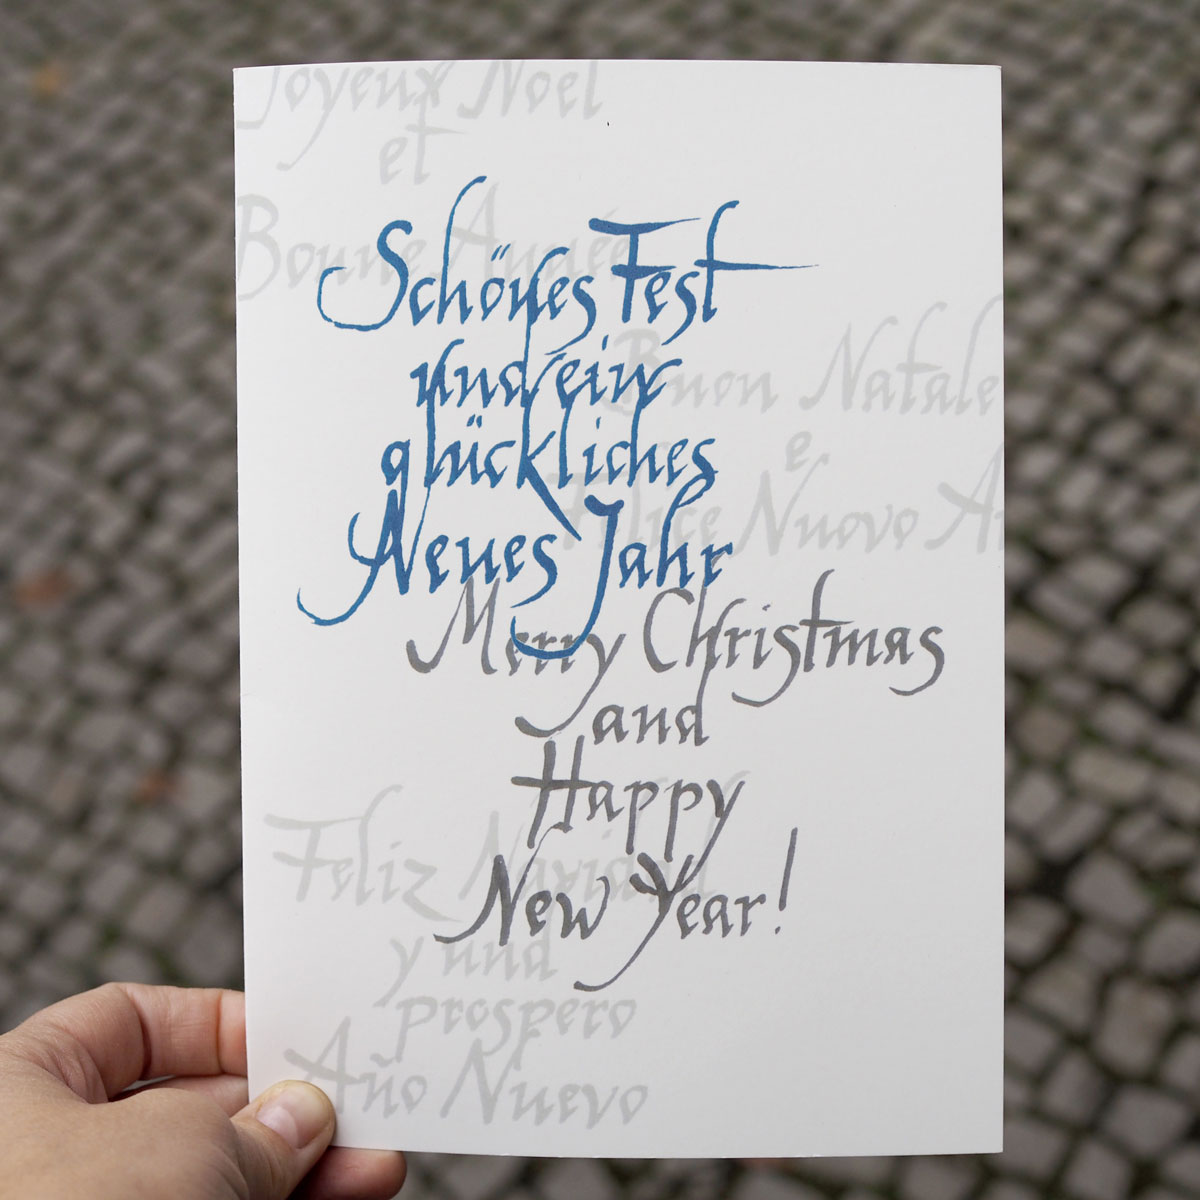 Joyeux Noel
et
Bonne Année
Schönes Fest
und ein
glückliches
Neues Jahr
Buon Natale
e
Felice Nuovo A
Merry Christmas
and
Happy
New Year!
Feliz Navidad
y und
prospero
Año Nuevo